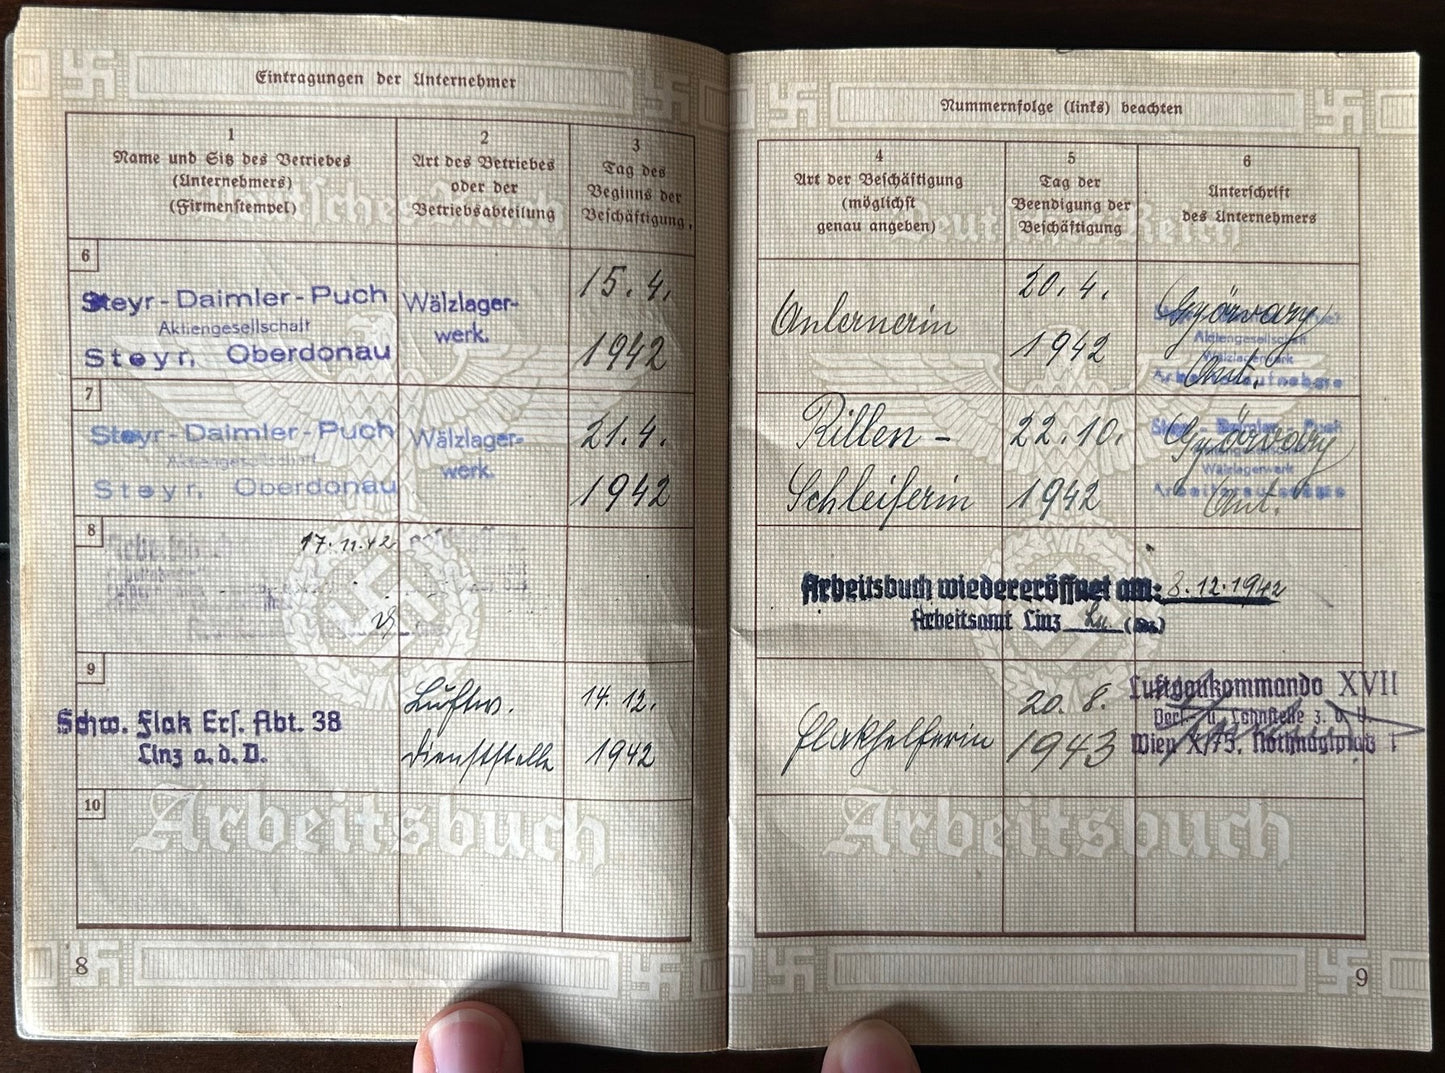 Eintragungen der Unternehmer
1
Name und Sitz des Betriebes
(Unternehmers)
(Firmenstempel)
2
Art des Betriebes
oder der
Betriebsabteilung
3
Tag des
Beginns der
Beschäftigung
6
Steyr-Daimler-Puch
Aktiengesellschaft
Steyr, Oberdonau
Wälzlager-
werk.
15. 4.
1942
7
Steyr-Daimler-Puch
Aktiengesellschaft
Steyr, Oberdonau
Wälzlager-
werk.
21. 4.
1942
8
17. 11. 42
9
Schw. Flak Ers. Abt. 38
Linz a. d. D.
Luftw.
dienststelle
14. 12.
1942
10
Deutsches Reich
Arbeitsbuch
8
Nummernfolge (links) beachten
4
Art der Beschäftigung
(möglichst
genau angeben)
5
Tag der
Beendigung der
Beschäftigung
6
Unterschrift
des Unternehmers
Anlernerin
20. 4.
1942
Györvary
Aktiengesellschaft
Wälzlagerwerk
Rillen-
Schleiferin
22. 10.
1942
Györvary
Wälzlagerwerk
Arbeitsbuch wiedereröffnet am: 8. 12. 1942
Arbeitsamt Linz
Flakhelferin
20. 8.
1943
Luftgaukommando XVII
Verl.- u. Lohnstelle z. b. V.
Wien X/75, Nothnaglplatz 1
Deutsches Reich
Arbeitsbuch
9